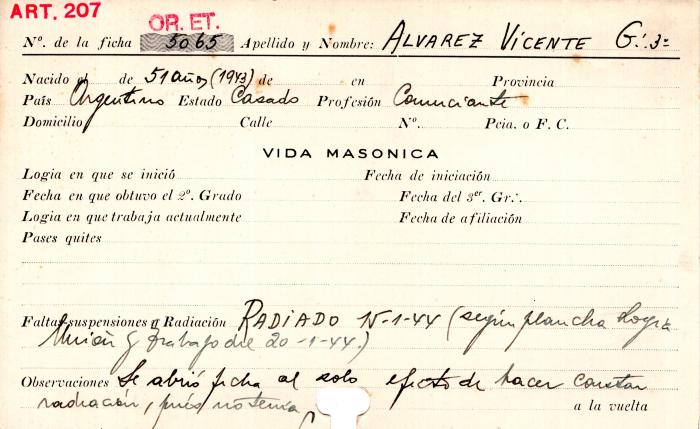 ART. 207
OR. ET.
Nº. de la ficha 5065 Apellido y Nombre: ALVAREZ VICENTE G∴ 3º
Nacido el de 51 años (1943) de en Provincia
País Argentino Estado Casado Profesión Comerciante
Domicilio Calle Nº. Pcia. o F. C.
VIDA MASONICA
Logia en que se inició Fecha de iniciación
Fecha en que obtuvo el 2º. Grado Fecha del 3er. Gr∴
Logia en que trabaja actualmente Fecha de afiliación
Pases quites
Faltas suspensiones y Radiación RADIADO 15-1-44 (según plancha Logia
Unión y Trabajo de 20-1-44.)
Observaciones Se abrió ficha al solo efecto de hacer constar
radiación, pués no tenía a la vuelta